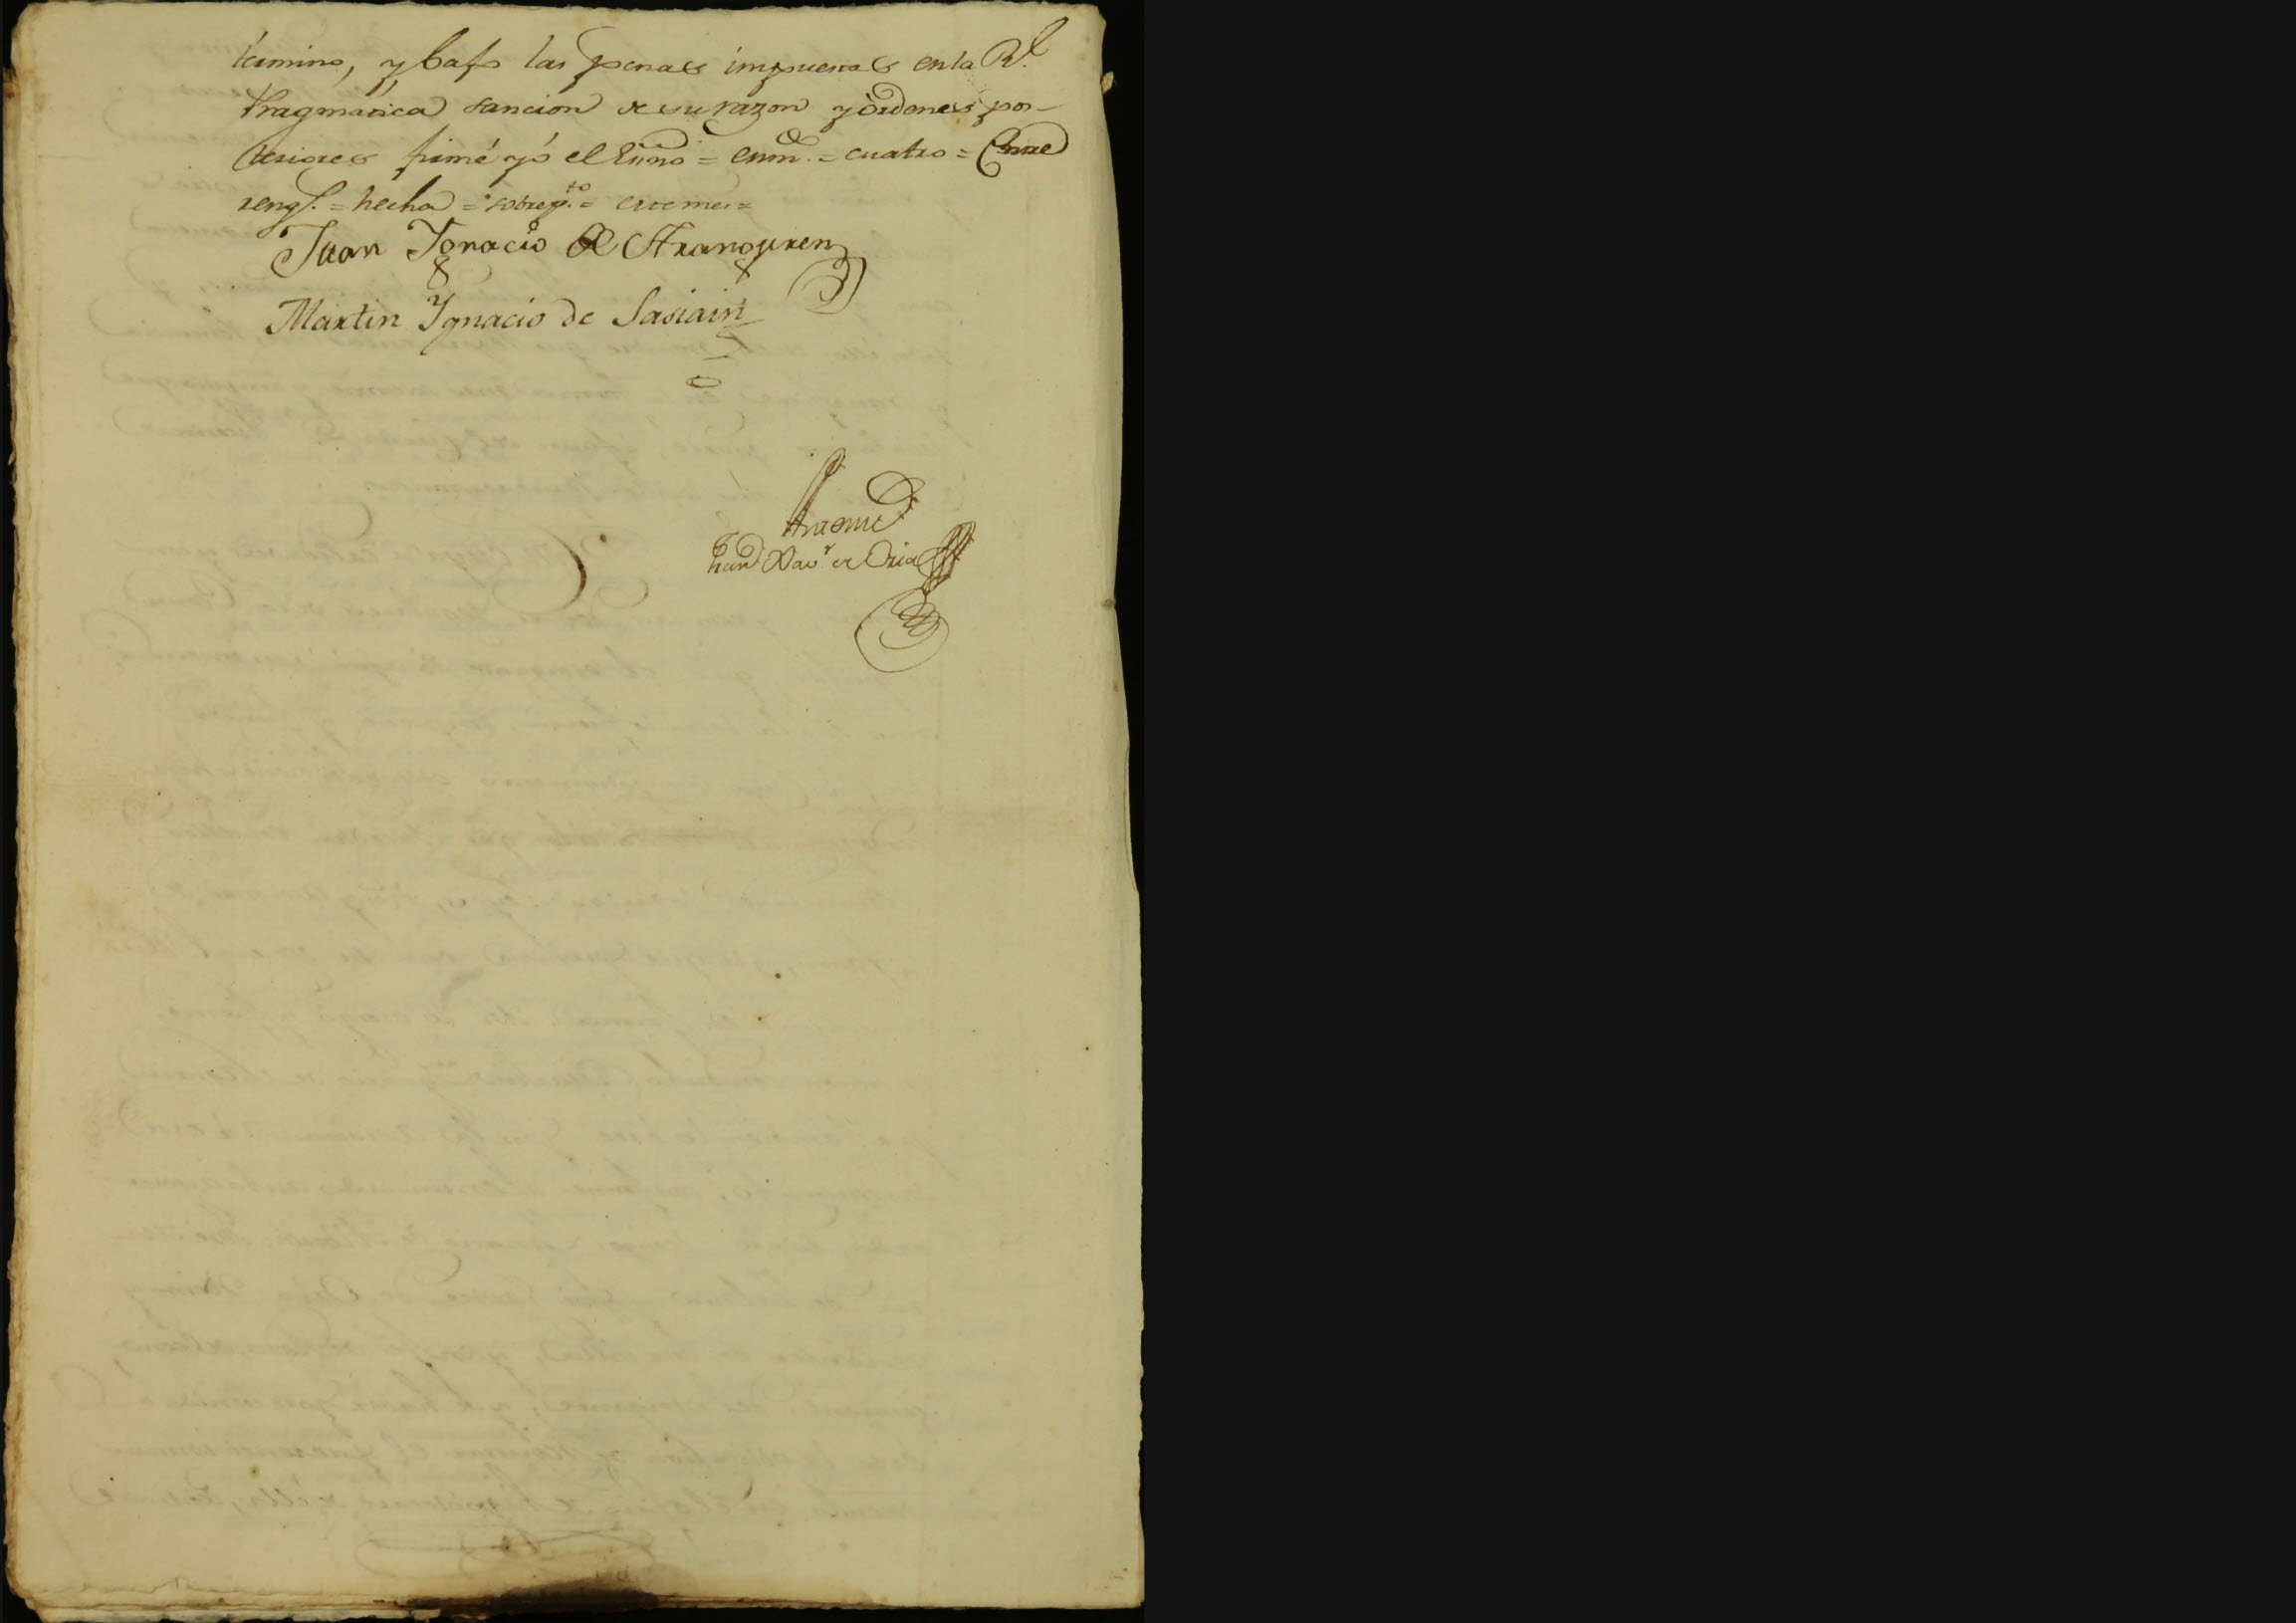 termino, y bajo las penas impuestas en la R.l
Pragmatica sancion de su razon y órdones pos-
teriores firmé yó el Esno = enm.do = cuatro = Entre
rengs. = hecha = sobrep.to = este mes =
Juan Ygnacio de Aranguren
Martin Ygnacio de Sasiain
Antemi
Juan Xav.r de Oria